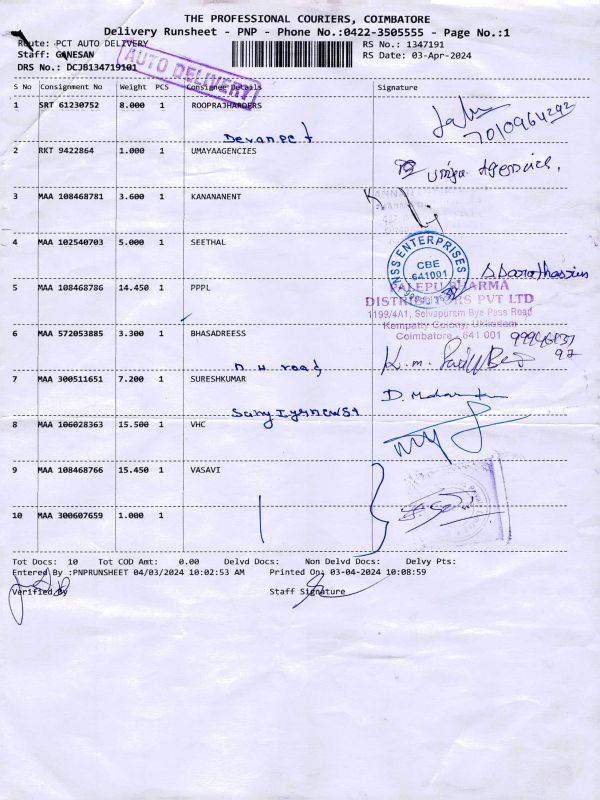 THE PROFESSIONAL COURIERS, COIMBATORE
Delivery Runsheet - PNP - Phone No.:0422-3505555 - Page No.:1
Route: PCT AUTO DELIVERY
RS No.: 1347191
Staff: GANESAN
RS Date: 03-Apr-2024
DRS No.: DCJB134719101
AUTO DELIVERY
S No Consignment No Weight PCS Consignee Details Signature
1 SRT 61230752 8.000 1 ROOPRAJHARDERS
7010964292
2 RKT 9422864 1.000 1 UMAYAAGENCIES
Agencies.
3 MAA 108468781 3.600 1 KANANANENT
4 MAA 102540703 5.000 1 SEETHAL
NSS ENTERPRISES
CBE
641001
5 MAA 108468786 14.450 1 PPPL
PALEPU PHARMA
DISTRIBUTORS PVT LTD
1199/4A1, Selvapuram Bye Pass Road
Kempatty Colony, Ukkadam
Coimbatore - 641 001
6 MAA 572053885 3.300 1 BHASADREESS
K. m.
7 MAA 300511651 7.200 1 SURESHKUMAR
8 MAA 106028363 15.500 1 VHC
9 MAA 108468766 15.450 1 VASAVI
10 MAA 300607659 1.000 1
Tot Docs: 10 Tot COD Amt: 0.00 Delvd Docs: Non Delvd Docs: Delvy Pts:
Entered By :PNPRUNSHEET 04/03/2024 10:02:53 AM Printed On: 03-04-2024 10:08:59
Verified By Staff Signature